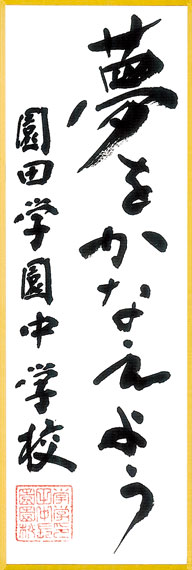 夢をかなえよう
園田学園中学校